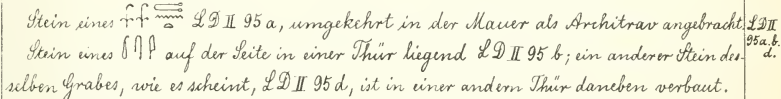 Stein eines LD II 95 a, umgekehrt in der Mauer als Architrav angebracht. LD II
Stein eines auf der Seite in einer Thür liegend LD II 95 b; ein anderer Stein des- 95 a. b.
selben Grabes, wie es scheint, LD II 95 d, ist in einer andern Thür daneben verbaut. d.